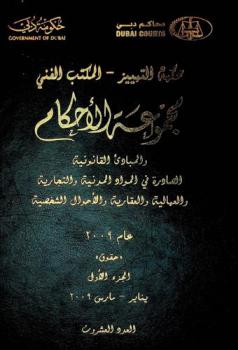 حكومة دبي
GOVERNMENT OF DUBAI
محاكم دبي
DUBAI COURTS
محكمة التمييز - المكتب الفني
مجموعة الأحكام
والمبادئ القانونية
الصادرة في المواد المدنية والتجارية
والعمالية والعقارية والأحوال الشخصية
عام ٢٠٠٩
«حقوق»
الجزء الأول
يناير - مارس ٢٠٠٩
العدد العشرون